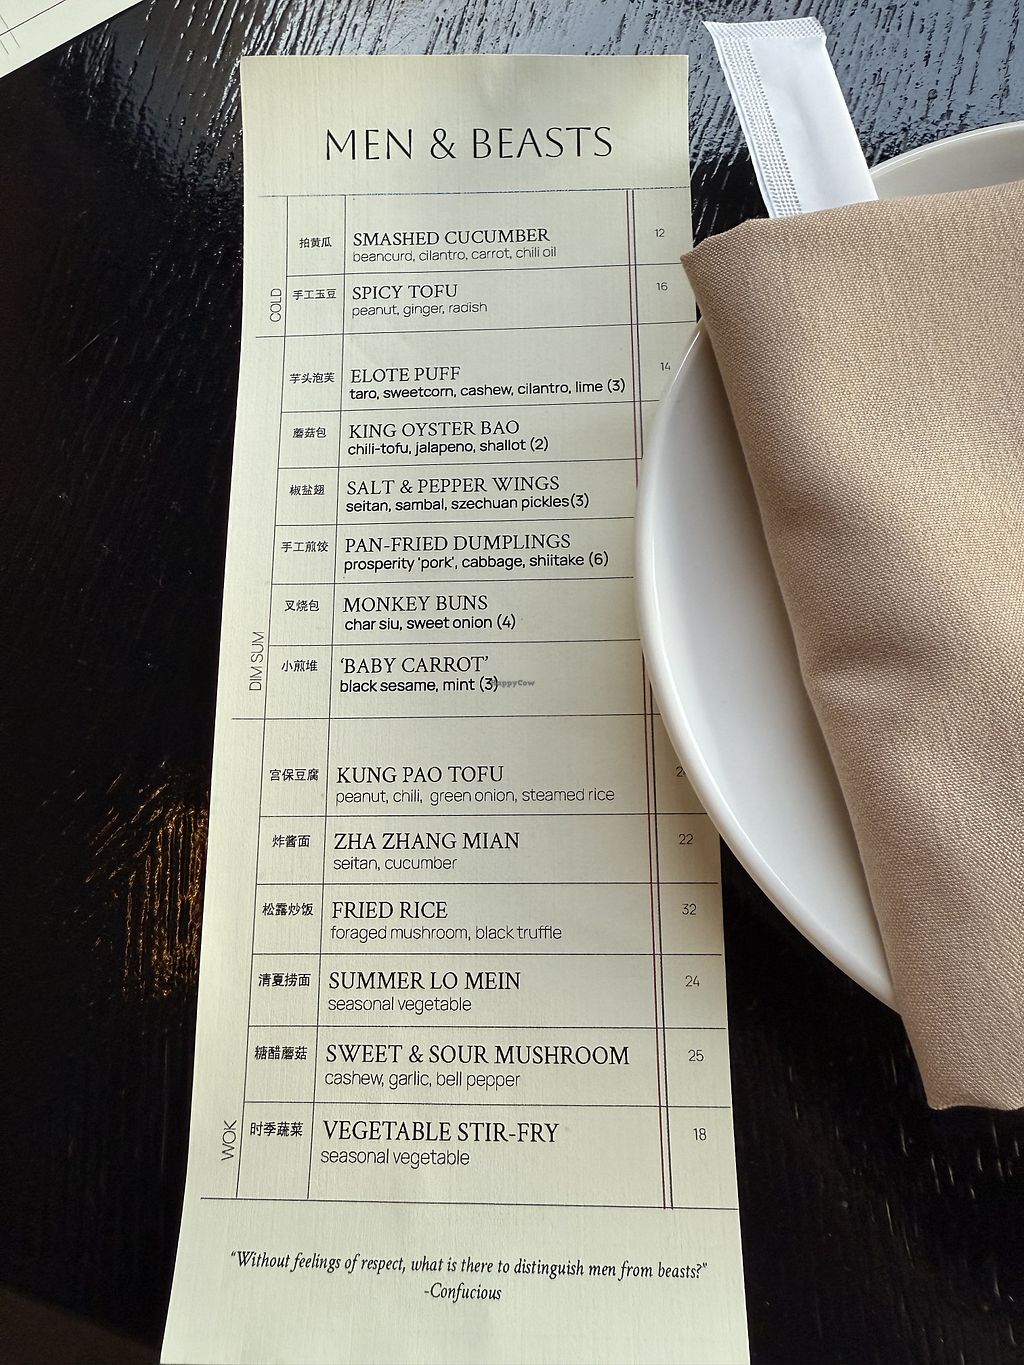 MEN & BEASTS
COLD
拍黄瓜 SMASHED CUCUMBER 12
beancurd, cilantro, carrot, chili oil
手工玉豆 SPICY TOFU 16
peanut, ginger, radish
DIM SUM
芋头泡芙 ELOTE PUFF 14
taro, sweetcorn, cashew, cilantro, lime (3)
蘑菇包 KING OYSTER BAO
chili-tofu, jalapeno, shallot (2)
椒盐翅 SALT & PEPPER WINGS
seitan, sambal, szechuan pickles(3)
手工煎饺 PAN-FRIED DUMPLINGS
prosperity 'pork', cabbage, shiitake (6)
叉烧包 MONKEY BUNS
char siu, sweet onion (4)
小煎堆 'BABY CARROT'
black sesame, mint (3)
HappyCow
WOK
宫保豆腐 KUNG PAO TOFU
peanut, chili, green onion, steamed rice
炸酱面 ZHA ZHANG MIAN 22
seitan, cucumber
松露炒饭 FRIED RICE 32
foraged mushroom, black truffle
清夏捞面 SUMMER LO MEIN 24
seasonal vegetable
糖醋蘑菇 SWEET & SOUR MUSHROOM 25
cashew, garlic, bell pepper
时季蔬菜 VEGETABLE STIR-FRY 18
seasonal vegetable
"Without feelings of respect, what is there to distinguish men from beasts?"
-Confucious